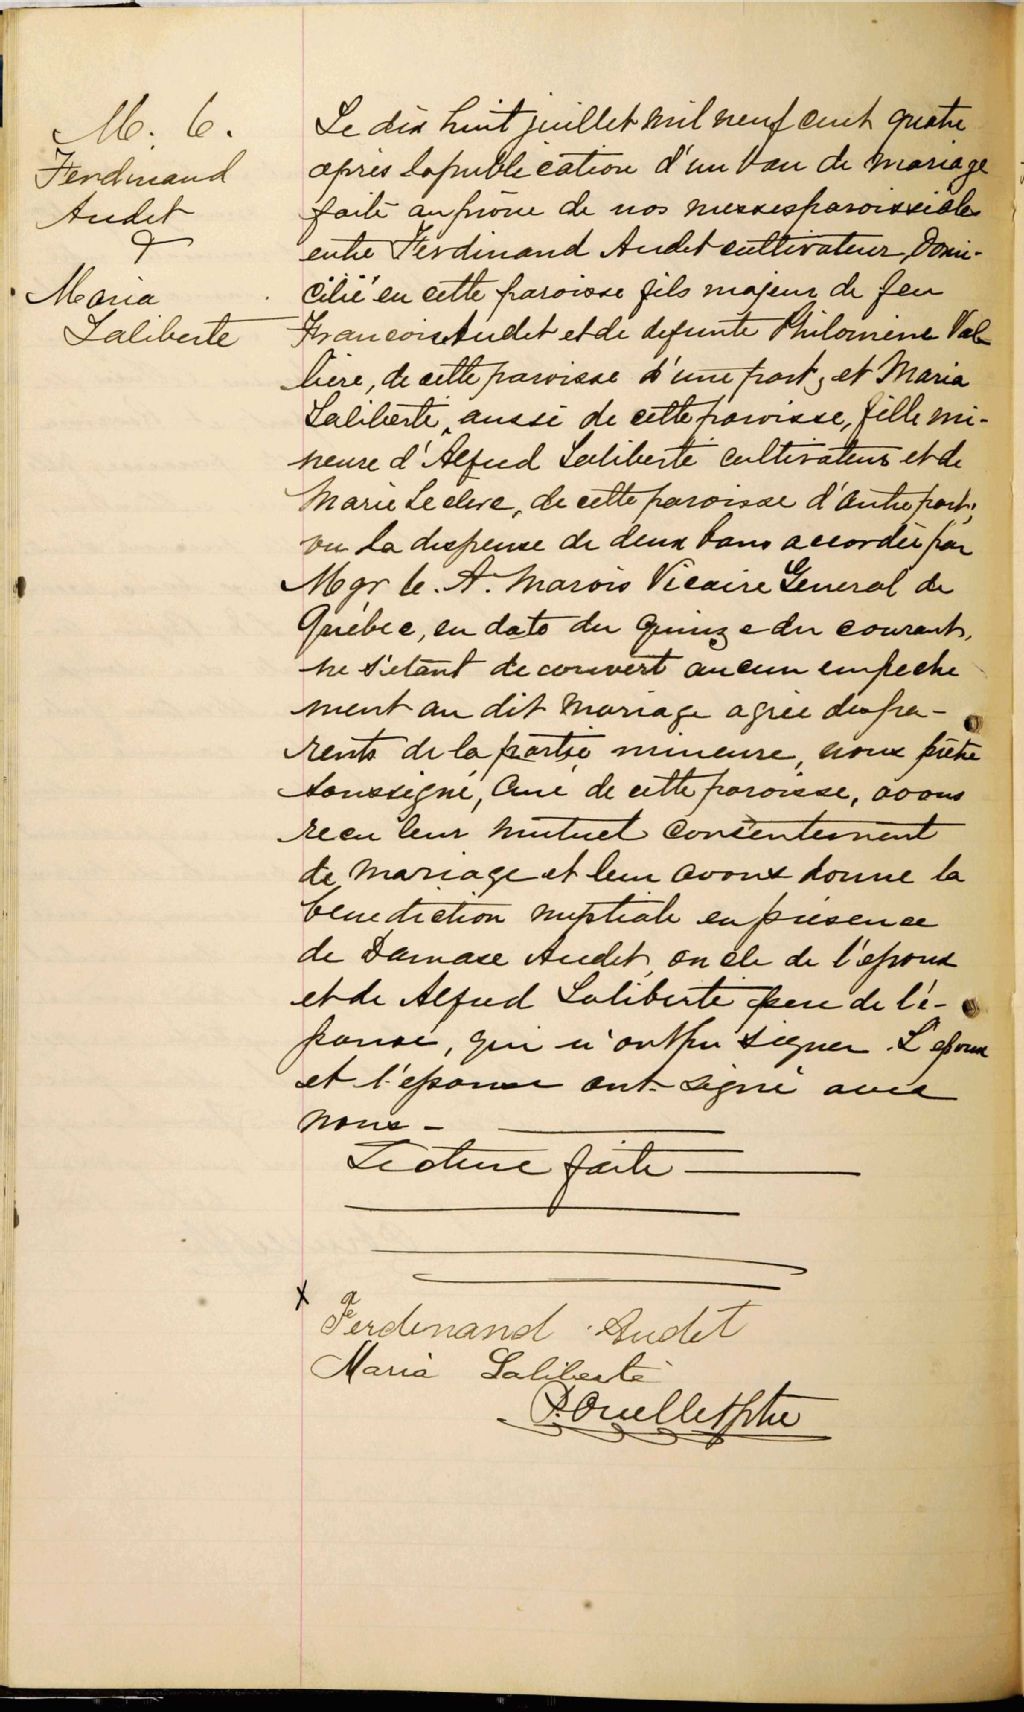 M. 6.
Ferdinand
Audet
&
Maria
Laliberte
Le dix huit juillet mil neuf cent quatre
après la publication d'un ban de mariage
faite au prône de nos messes paroissiales
entre Ferdinand Audet cultivateur, Domi-
cilié en cette paroisse fils majeur de feu
Francois Audet et de defunte Philomène Val
lière, de cette paroisse d'une part, et Maria
Laliberté, aussi de cette paroisse, fille mi-
neure d'Alfred Laliberté cultivateur et de
Marie Leclerc, de cette paroisse d'autre part;
vu la dispense de deux bans accordée par
Mgr C. A. Marois Vicaire General de
Québec, en date du quinze du courant,
ne s'étant découvert aucun empeche
ment au dit mariage agrée des pa-
rents de la partie mineure, nous prêtre
soussigné, Curé de cette paroisse, avons
recu leur mutuel consentement
de mariage et leur avons donne la
bénediction nuptiale en présence
de Damase Audet, oncle de l'epoux
et de Alfred Laliberté père de l'é-
pouse, qui n'ont pu signer. L'epoux
et l'épouse ont signé avec
nous -
Lecture faite
x
Ferdinand Audet
Maria Laliberté
P. Ouellet ptre